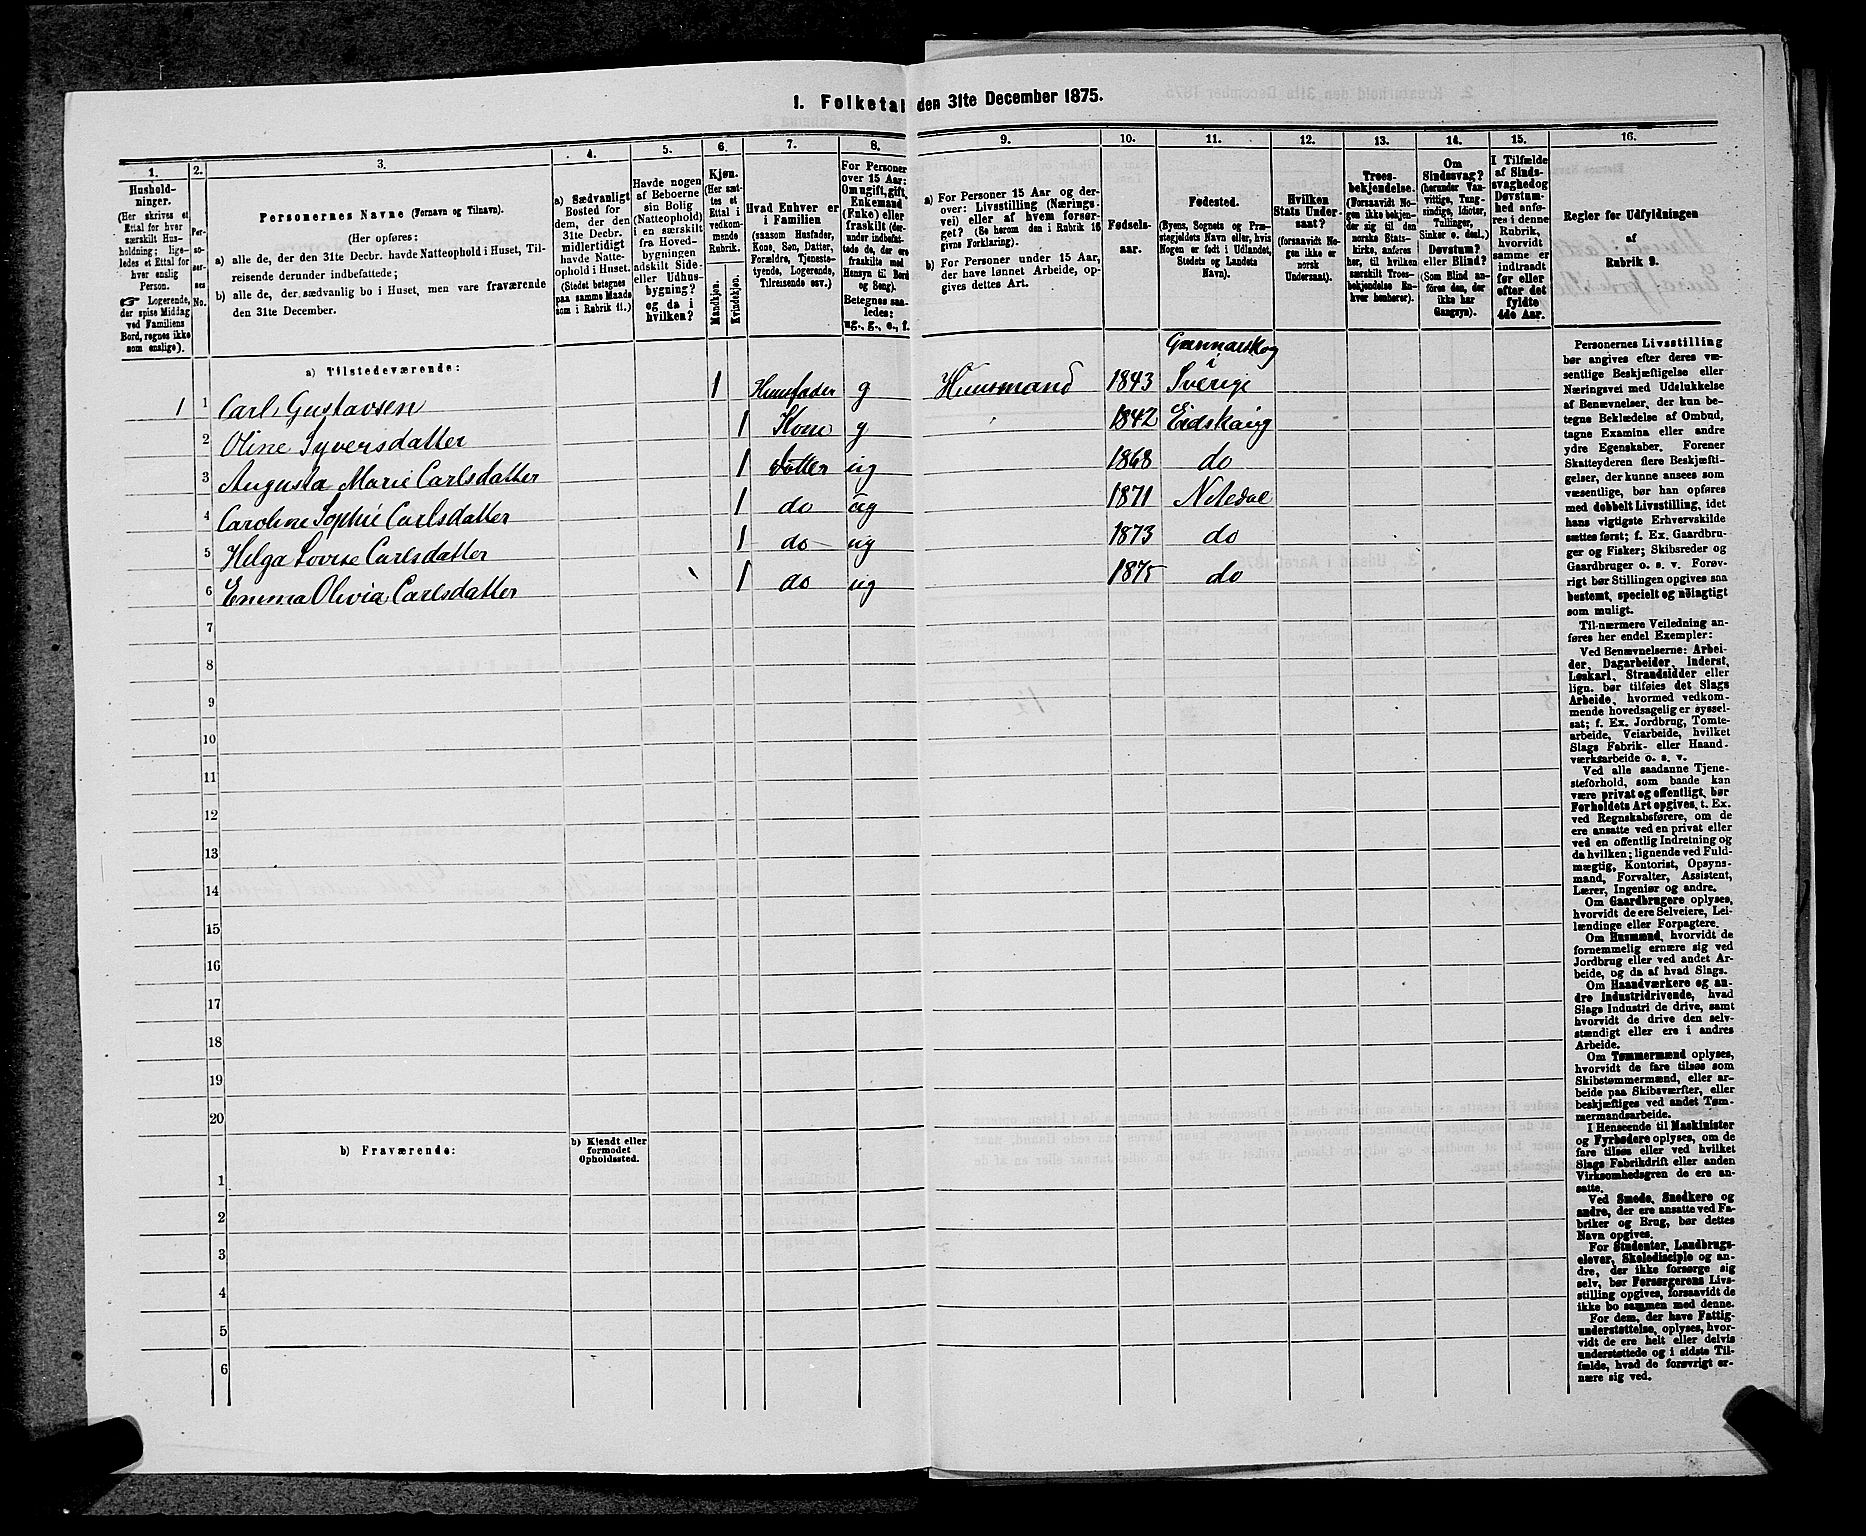 1. Folketal den 31te December 1875.
1.
Hushold-
ninger.
(Her skrives et
Ettal for hver
særskilt Hus-
holdning; lige-
ledes et Ettal for
hver enslig
Person.
Logerende,
der spise Middag
ved Familiens
Bord, regnes ikke
som enslige).
2.
Per-
so-
ner-
nes
No.
3.
Personernes Navne (Fornavn og Tilnavn).
(Her opføres:
a) alle de, der den 31te Decbr. havde Natteophold i Huset, Til-
reisende derunder indbefattede;
b) alle de, der sædvanlig bo i Huset, men vare fraværende
den 31te December.
4.
a) Sædvanligt
Bosted for
dem, der den
31te Decbr.
midlertidigt
havde Natte-
ophold i Huset.
(Stedet betegnes
paa samme Maade
som i Rubrik 11.)
5.
Havde nogen
af Beboerne
sin Bolig
(Natteophold)
i en særskilt
fra Hoved-
bygningen
adskilt Side-
eller Udhus-
bygning?
og da i
hvilken?
6.
Kjøn.
(Her sæt-
tes et
Ettal i
vedkom-
mende
Rubrik.
Mandkjøn.
Kvindekjøn.
7.
Hvad Enhver er
i Familien
(saasom Husfader,
Kone, Søn, Datter,
Forældre, Tjeneste-
tyende, Logerende,
Tilreisende osv.)
8.
For Personer
over 15 Aar:
Om ugift, gift,
Enkemand
(Enke) eller
fraskilt (der-
under indbefat-
tede de, der ere
fraskilte med
Hensyn til Bord
og Seng).
Betegnes saa-
ledes:
ug., g., e., f.
9.
a) For Personer 15 Aar og der-
over: Livsstilling (Nærings-
vei) eller af hvem forsør-
get? (Se herom den i Rubrik 16
givne Forklaring).
b) For Personer under 15 Aar,
der have lønnet Arbeide, op-
gives dettes Art.
10.
Fødsels-
aar.
11.
Fødested.
(Byens, Sognets og Præ-
stegjeldets Navn eller, hvis
Nogen er født i Udlandet,
Stedets og Landets
Navn).
12.
Hvilken
Stats Under-
saat?
(forsaavidt No-
gen ikke er
norsk
Undersaat).
13.
Troes-
bekjendelse.
(Forsaavidt No-
gen ikke bekjen-
der sig til den
norske Stats-
kirke, anføres
her, til hvilken
særskilt Troes-
bekjendelse En-
hver henhører).
14.
Om
Sindssvag?
(herunder Van-
vittige, Tung-
sindige, Idioter,
Tullinger,
Sinker o. desl.)
Døvstum?
eller Blind?
(Som Blind an-
føres den, der
ikke har
Gangsyn).
15.
I Tilfælde
af Sinds-
svaghed og
Døvstum-
hed anfø-
res i denne
Rubrik,
hvorvidt
samme er
indtraadt
før eller
efter det
fyldte
4de Aar.
16.
Regler for Udfyldningen
af
Rubrik 9.
a) Tilstedeværende:
Gunnarskog
i
1 1 Carl Gustavsen 1 Huusfader g Huusmand 1843 Sverige
2 Oline Syversdatter 1 Kone g 1842 Eidskaug
3 Augusta Marie Carlsdatter 1 Datter ug 1868 do
4 Caroline Sophie Carlsdatter 1 do ug 1871 Nitedal
5 Helga Lovise Carlsdatter 1 do ug 1873 do
6 Emma Olivia Carlsdatter 1 do ug 1875 do
7
8
9
10
11
12
13
14
15
16
17
18
19
20
b) Fraværende:
b) Kjendt eller
formodet
Opholdssted.
1
2
3
4
5
6
Personernes Livsstilling
bør angives efter deres væ-
sentlige Beskjæftigelse eller
Næringsvei med Udelukkelse
af Benævnelser, der kun be-
tegne Beklædelse af Ombud,
tagne Examina eller andre
ydre Egenskaber. Forener
Skatteyderen flere Beskjæfti-
gelser, der kunne ansees som
væsentlige, bør han opføres
med dobbelt Livsstilling, idet
hans vigtigste Erhvervskilde
sættes først; f. Ex. Gaardbru-
ger og Fisker; Skibsreder og
Gaardbruger o. s. v. Forøv-
rigt bør Stillingen opgives saa
bestemt, specielt og nøiagtigt
som muligt.
Til nærmere Veiledning an-
føres her endel Exempler:
Ved Benævnelserne: Arbei-
der, Dagarbeider, Inderst,
Løskarl, Strandsidder eller
lign. bør tilføies det Slags
Arbeide, hvormed vedkom-
mende hovedsagelig er syssel-
sat; f. Ex. Jordbrug, Tomte-
arbeide, Veiarbeide, hvilket
Slags Fabrik- eller Haand-
værksarbeide o. s. v.
Ved alle saadanne Tjene-
steforhold, som baade kan
være privat og offentligt, bør
Forholdets Art opgives, t. Ex.
ved Regnskabsførere, om de
ere ansatte ved en privat eller
ved en offentlig Indretning og
da hvilken; lignende ved Fuld-
mægtig, Kontorist, Opsyns-
mand, Forvalter, Assistent,
Lærer, Ingeniør og andre.
Om Gaardbrugere oplyses,
hvorvidt de ere Selveiere, Lei-
lændinge eller Forpagtere.
Om Husmænd, hvorvidt de
fornemmelig ernære sig ved
Jordbrug eller ved andet Ar-
beide, og da af hvad Slags.
Om Haandværkere og an-
dre Industridrivende, hvad
Slags Industri de drive, samt
hvorvidt de drive den selv-
stændigt eller ere i andres
Arbeide.
Om Tømmermænd oplyses,
hvorvidt de fare tilsøs som
Skibstømmermænd, eller ar-
beide paa Skibsværfter, eller
beskjæftiges ved andet Tøm-
mermandsarbeide.
I Henseende til Maskinister
og Fyrbødere oplyses, om de
fare tilsøs eller ved hvilket
Slags Fabrikdrift eller anden
Virksomhedsgren de ere an-
satte.
Ved Smede, Snedkere og
andre, der ere ansatte ved Fa-
briker og Brug, bør dettes
Navn opgives.
For Studenter, Landbrugs-
elever, Skoledisciple og an-
dre, der ikke forsørge sig
selv, bør Forsørgerens Livs-
stilling opgives, forsaavidt de
ikke bo sammen med denne.
For dem, der have Fattig-
understøttelse, oplyses, hvor-
vidt de ere helt eller delvis
understøttede og i sidste Til-
fælde, hvad de forøvrigt er-
nære sig ved.